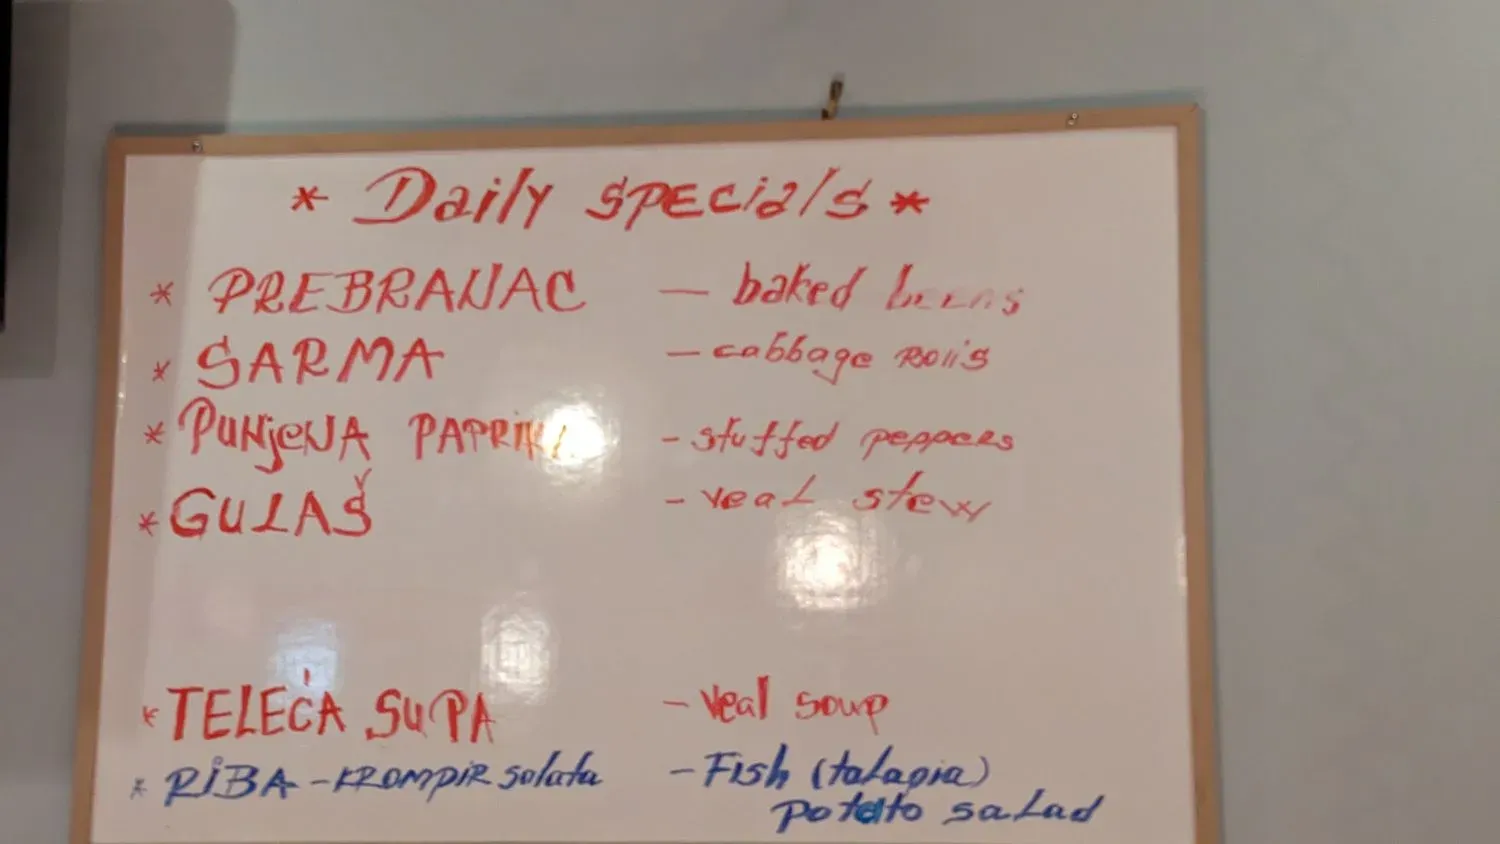 * Daily SPECials *
* PREBRANAC — baked beens
* SARMA — cabbage Rolls
* PUNjeNA PAPRIKA - stuffed peppers
* GULAŠ - veal stew
* TELEĆA SUPA - Veal soup
* RIBA - KROMPIR salata - Fish (talapia)
potato salad